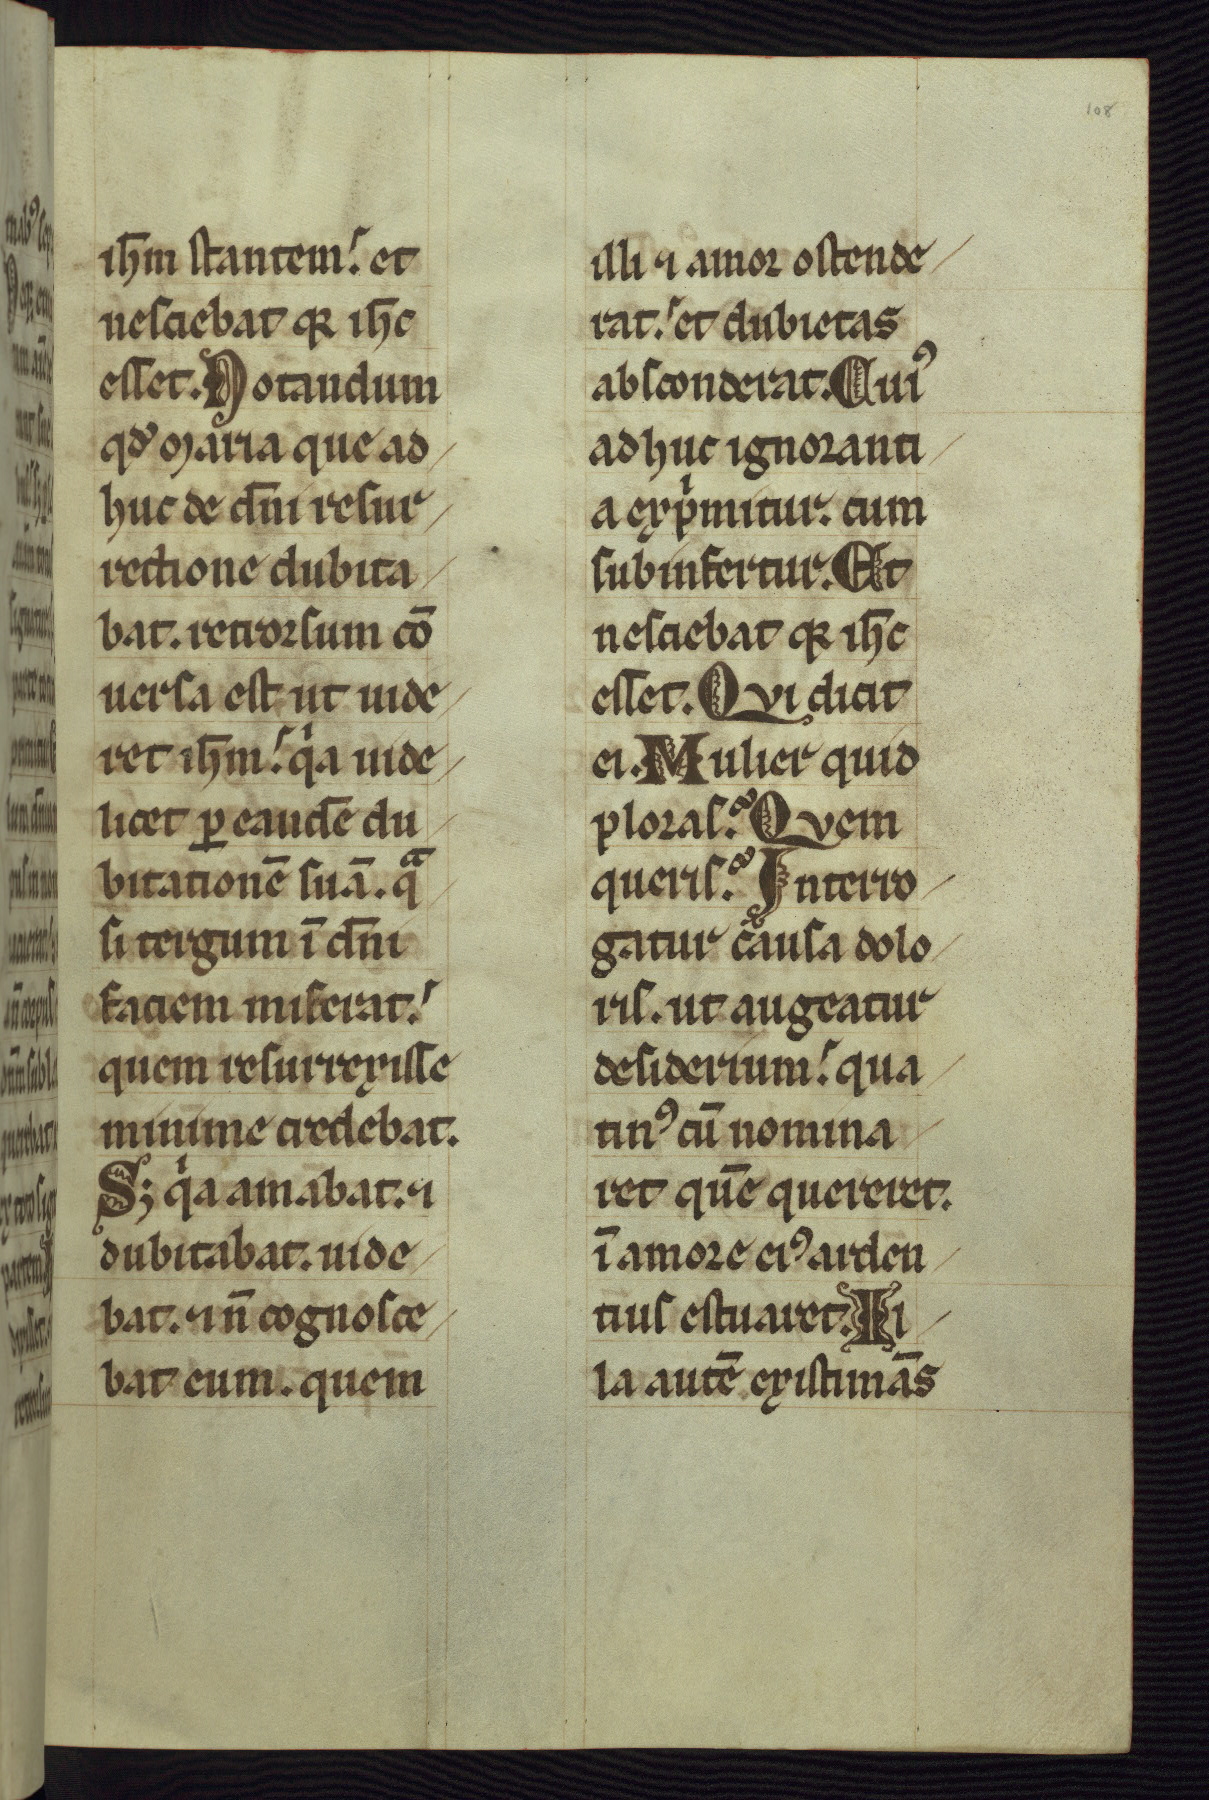 108
ih̄m stantem. et
nesciebat qꝛ ih̄c
esset. Notandum
qd' maria que ad
huc de dn̄i resur
rectione dubita
bat. retrorsum cō
uersa est ut uide
ret ih̄m. qia uide
licet ꝑ eandē du
bitationē suā. qa
si tergum ī dn̄i
faciem miserat.
quem resurrexisse
minime credebat.
Sꝫ qia amabat. ⁊
dubitabat. uide
bat. ⁊ n̄ cognosce
bat eum. quem
illi ⁊ amor ostende
rat. et dubietas
absconderat. Cuiꝰ
adhuc ignoranti
a expimitur. cum
subinfertur. Et
nesciebat qꝛ ih̄c
esset. Qvi dicit
ei. Mulier quid
ploras? Qvem
queris? Interro
gatur causa dolo
ris. ut augeatur
desiderium. qua
tinꝰ cū nomina
ret quē quereret.
ī amore eiꝰ arden
tius estuaret. Il
la autē existimās